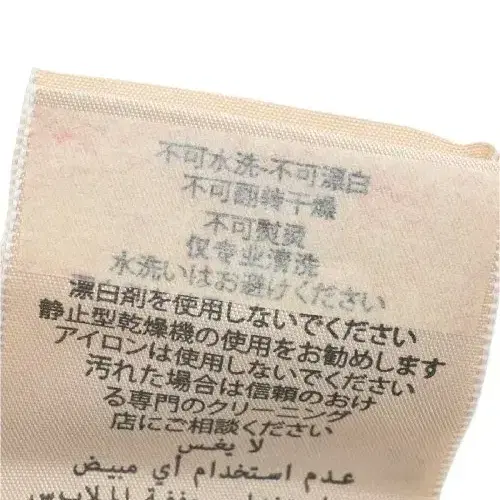 不可水洗-不可漂白
不可翻转干燥
不可熨烫
仅专业清洗
水洗いはお避けください
漂白剤を使用しないでください
静止型乾燥機の使用をお勧めします
アイロンは使用しないでください
汚れた場合は信頼のおけ
る専門のクリーニング
店にご相談ください
لا يغس
عدم استخدام أي مبيض